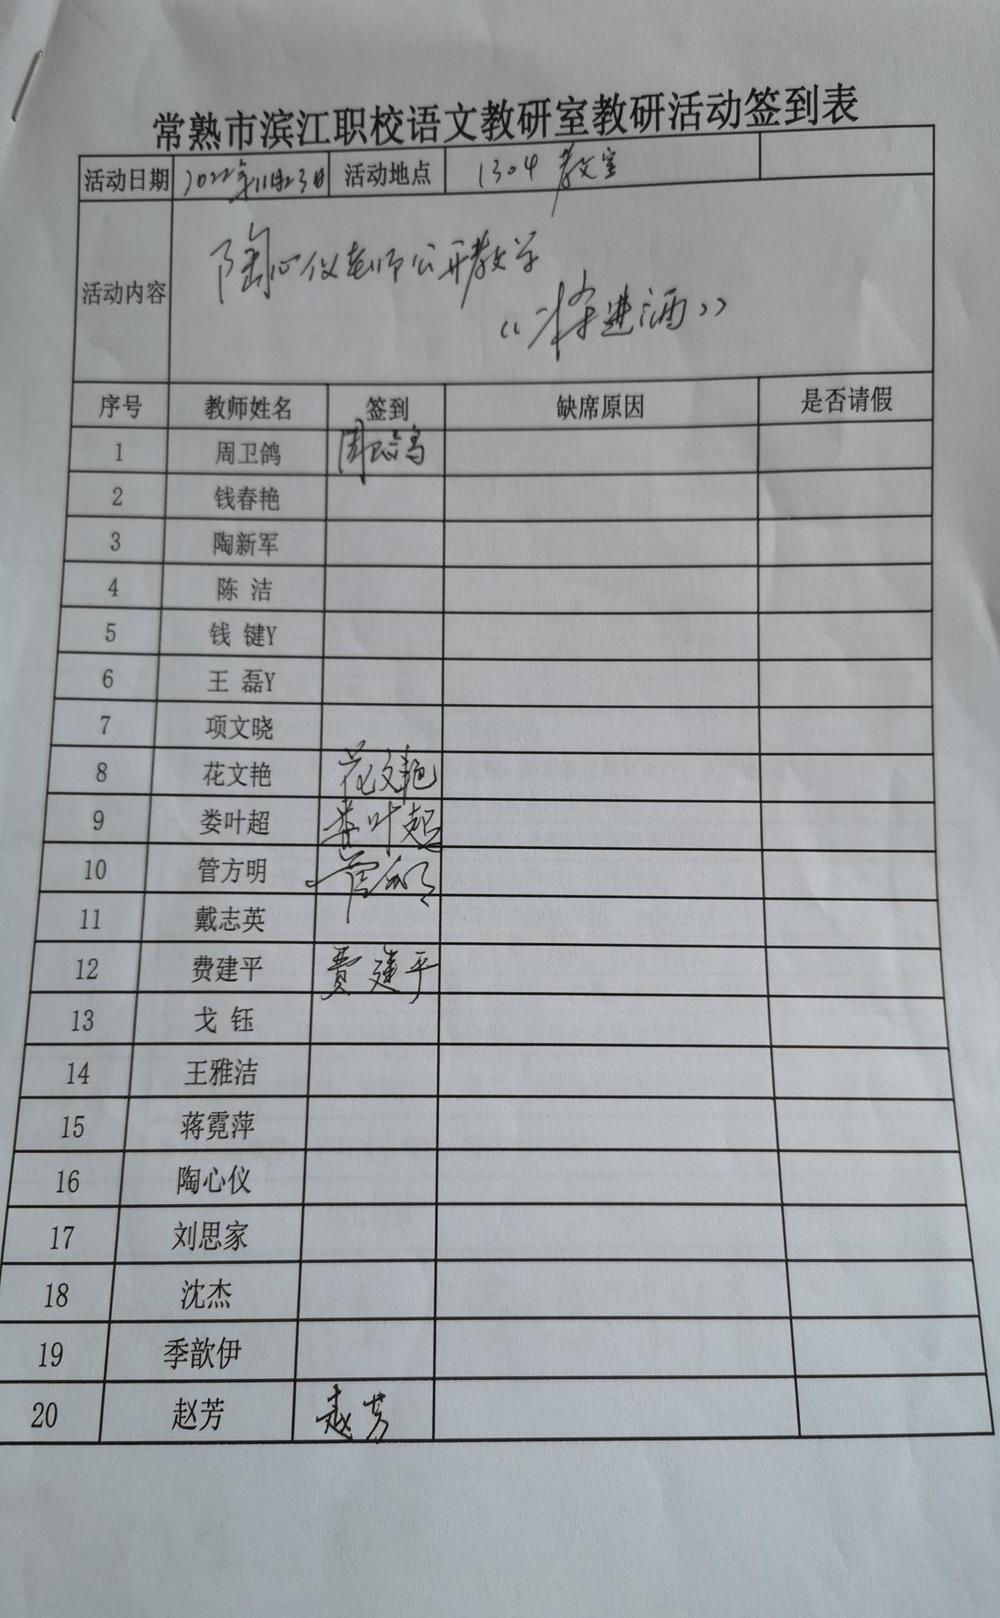 常熟市滨江职校语文教研室教研活动签到表
活动日期 2022年11月23日 活动地点 1304 教室
活动内容 陶心仪老师公开教学
《将进酒》
序号 教师姓名 签到 缺席原因 是否请假
1 周卫鸽 周卫鸽
2 钱春艳
3 陶新军
4 陈 洁
5 钱 键Y
6 王 磊Y
7 项文晓
8 花文艳 花文艳
9 娄叶超 娄叶超
10 管方明 管方明
11 戴志英
12 费建平 费建平
13 戈 钰
14 王雅洁
15 蒋霓萍
16 陶心仪
17 刘思家
18 沈杰
19 季歆伊
20 赵芳 赵芳